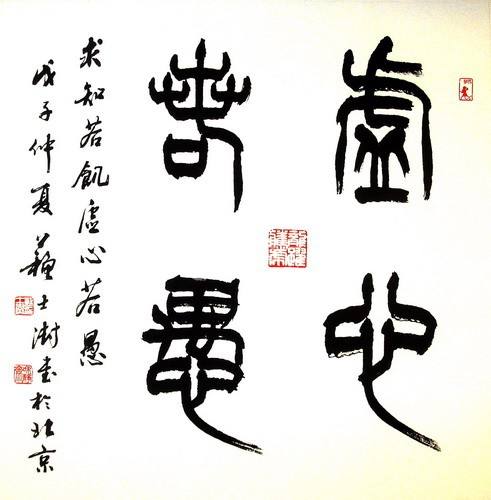 虚心
若愚
求知若飢虚心若愚
戊子仲夏蘇士澍書於北京